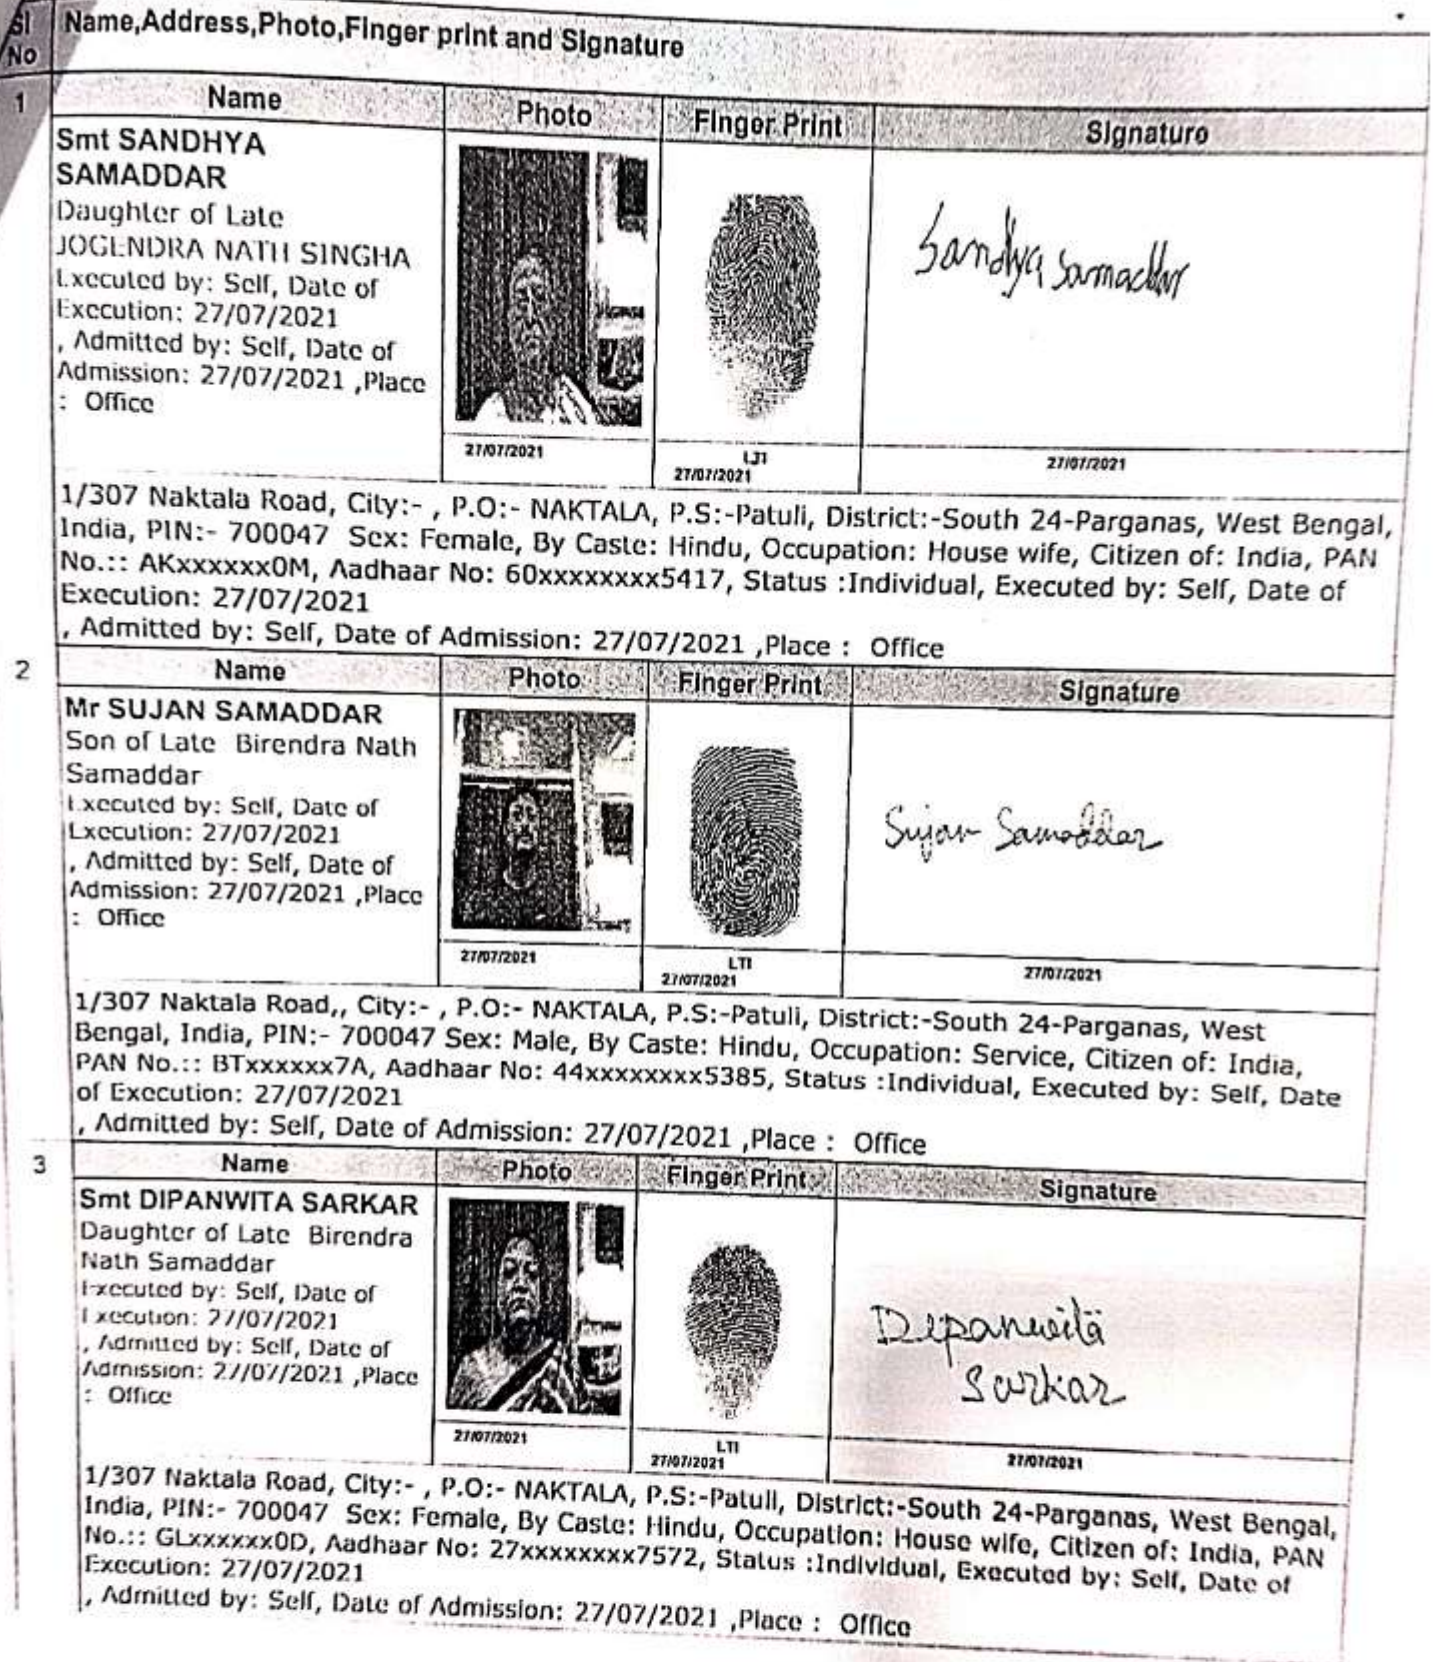 Sl No
Name,Address,Photo,Finger print and Signature
1
Name Photo Finger Print Signature
Smt SANDHYA
SAMADDAR
Daughter of Late
JOGENDRA NATH SINGHA
Executed by: Self, Date of
Execution: 27/07/2021
, Admitted by: Self, Date of
Admission: 27/07/2021 ,Place
: Office
Sandhya Samaddar
27/07/2021
LTI
27/07/2021
27/07/2021
1/307 Naktala Road, City:- , P.O:- NAKTALA, P.S:-Patuli, District:-South 24-Parganas, West Bengal,
India, PIN:- 700047 Sex: Female, By Caste: Hindu, Occupation: House wife, Citizen of: India, PAN
No.:: AKxxxxxx0M, Aadhaar No: 60xxxxxxxx5417, Status :Individual, Executed by: Self, Date of
Execution: 27/07/2021
, Admitted by: Self, Date of Admission: 27/07/2021 ,Place : Office
2
Name Photo Finger Print Signature
Mr SUJAN SAMADDAR
Son of Late Birendra Nath
Samaddar
Executed by: Self, Date of
Execution: 27/07/2021
, Admitted by: Self, Date of
Admission: 27/07/2021 ,Place
: Office
Sujan Samaddar
27/07/2021
LTI
27/07/2021
27/07/2021
1/307 Naktala Road,, City:- , P.O:- NAKTALA, P.S:-Patuli, District:-South 24-Parganas, West
Bengal, India, PIN:- 700047 Sex: Male, By Caste: Hindu, Occupation: Service, Citizen of: India,
PAN No.:: BTxxxxxx7A, Aadhaar No: 44xxxxxxxx5385, Status :Individual, Executed by: Self, Date
of Execution: 27/07/2021
, Admitted by: Self, Date of Admission: 27/07/2021 ,Place : Office
3
Name Photo Finger Print Signature
Smt DIPANWITA SARKAR
Daughter of Late Birendra
Nath Samaddar
Executed by: Self, Date of
Execution: 27/07/2021
, Admitted by: Self, Date of
Admission: 27/07/2021 ,Place
: Office
Dipanwita
Sarkar
27/07/2021
LTI
27/07/2021
27/07/2021
1/307 Naktala Road, City:- , P.O:- NAKTALA, P.S:-Patuli, District:-South 24-Parganas, West Bengal,
India, PIN:- 700047 Sex: Female, By Caste: Hindu, Occupation: House wife, Citizen of: India, PAN
No.:: GLxxxxxx0D, Aadhaar No: 27xxxxxxxx7572, Status :Individual, Executed by: Self, Date of
Execution: 27/07/2021
, Admitted by: Self, Date of Admission: 27/07/2021 ,Place : Office